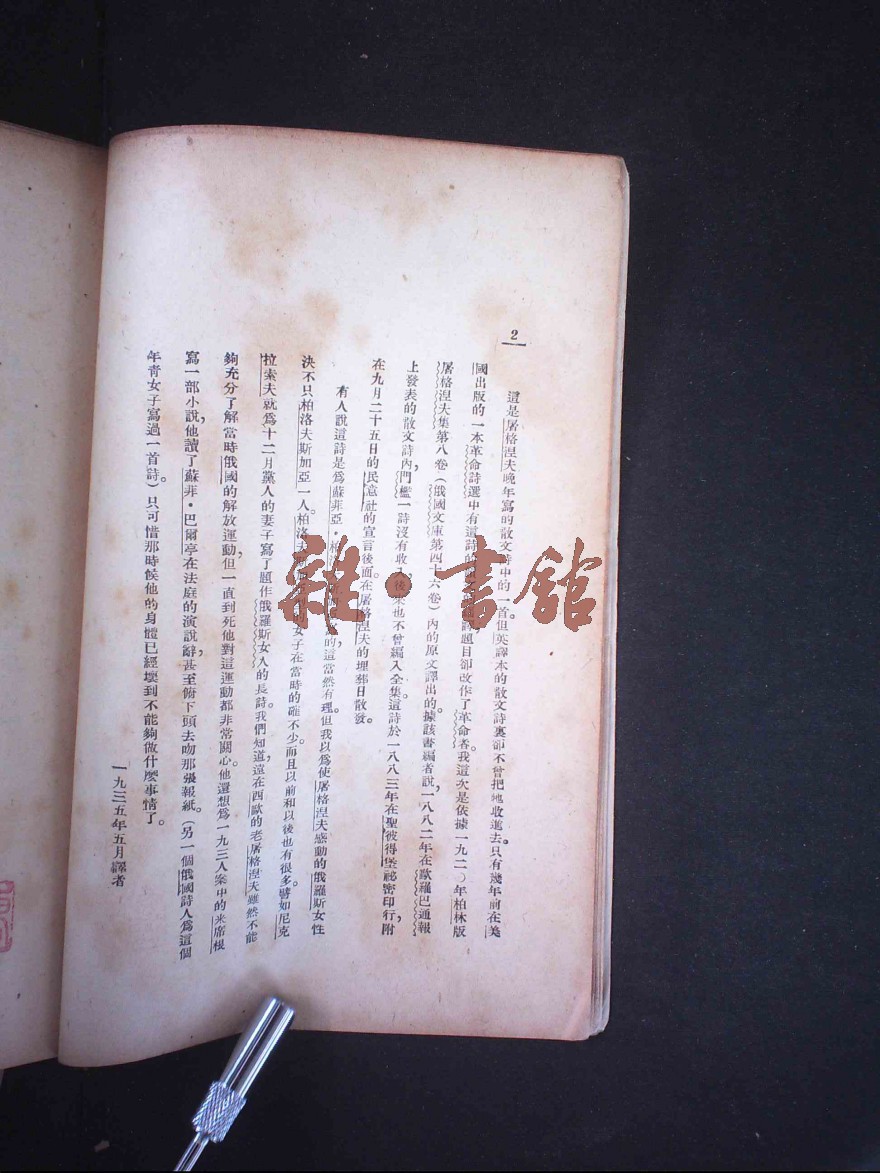 2
這是屠格涅夫晚年寫的散文詩中的一首。但英譯本的散文詩裏卻不曾把牠收進去。只有幾年前在美
國出版的一本革命詩選中有這詩的 題目卻改作了革命者。我這次是依據一九二〇年柏林版
屠格涅夫集第八卷（俄國文庫第四十六卷）內的原文譯出的。據該書編者說，一八八二年在歐羅巴通報
上發表的散文詩內，門檻一詩沒有收入，後來也不曾編入全集。這詩於一八八三年在聖彼得堡祕密印行，附
在九月二十五日的民意社的宣言後面。在屠格涅夫的埋葬日散發。
有人說這詩是爲蘇菲亞・柏 的，這當然有理。但我以爲使屠格涅夫感動的俄羅斯女性
決不只柏洛夫斯加亞一人。柏洛夫斯 的女子在當時的確不少。而且以前和以後也有很多。譬如尼克
拉索夫就爲十二月黨人的妻子寫了題作俄羅斯女人的長詩。我們知道，遠在西歐的老屠格涅夫雖然不能
夠充分了解當時俄國的解放運動，但一直到死他對這運動都非常關心。他還想爲一九三人案中的米席根
寫一部小說，他讀了蘇菲・巴爾亭在法庭的演說辭，甚至俯下頭去吻那張報紙。（另一個俄國詩人爲這個
年靑女子寫過一首詩。）只可惜那時候他的身體已經壞到不能夠做什麼事情了。
一九三五年五月譯者
雜・書館